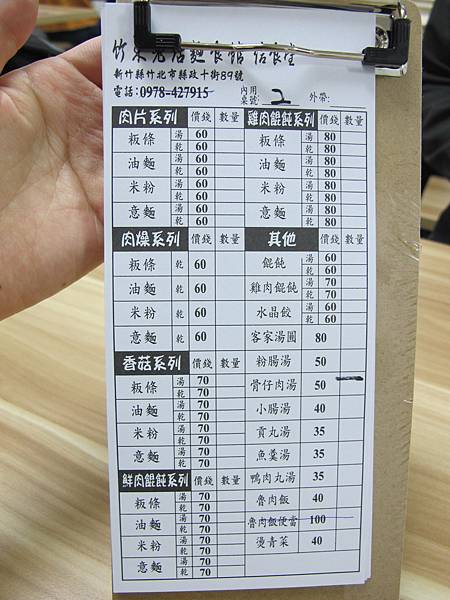 竹東老店麵食館 信食堂
新竹縣竹北市縣政十街89號
電話:0978=427915 內用桌號: 2 外帶:
肉片系列 價錢 數量
粄條 湯 60 乾 60
油麵 湯 60 乾 60
米粉 湯 60 乾 60
意麵 湯 60 乾 60
肉燥系列 價錢 數量
粄條 乾 60
油麵 乾 60
米粉 乾 60
意麵 乾 60
香菇系列 價錢 數量
粄條 湯 70 乾 70
油麵 湯 70 乾 70
米粉 湯 70 乾 70
意麵 湯 70 乾 70
鮮肉餛飩系列 價錢 數量
粄條 湯 70 乾 70
油麵 湯 70 乾 70
米粉 湯 70 乾 70
意麵 湯 70 乾 70
雞肉餛飩系列 價錢 數量
粄條 湯 80 乾 80
油麵 湯 80 乾 80
米粉 湯 80 乾 80
意麵 湯 80 乾 80
其他 價錢 數量
餛飩 湯 60 乾 60
雞肉餛飩 湯 70 乾 70
水晶餃 湯 60 乾 60
客家湯圓 80
粉腸湯 50
骨仔肉湯 50
小腸湯 40
貢丸湯 35
魚羹湯 35
鴨肉丸湯 35
魯肉飯 40
魯肉飯便當 100
燙青菜 40